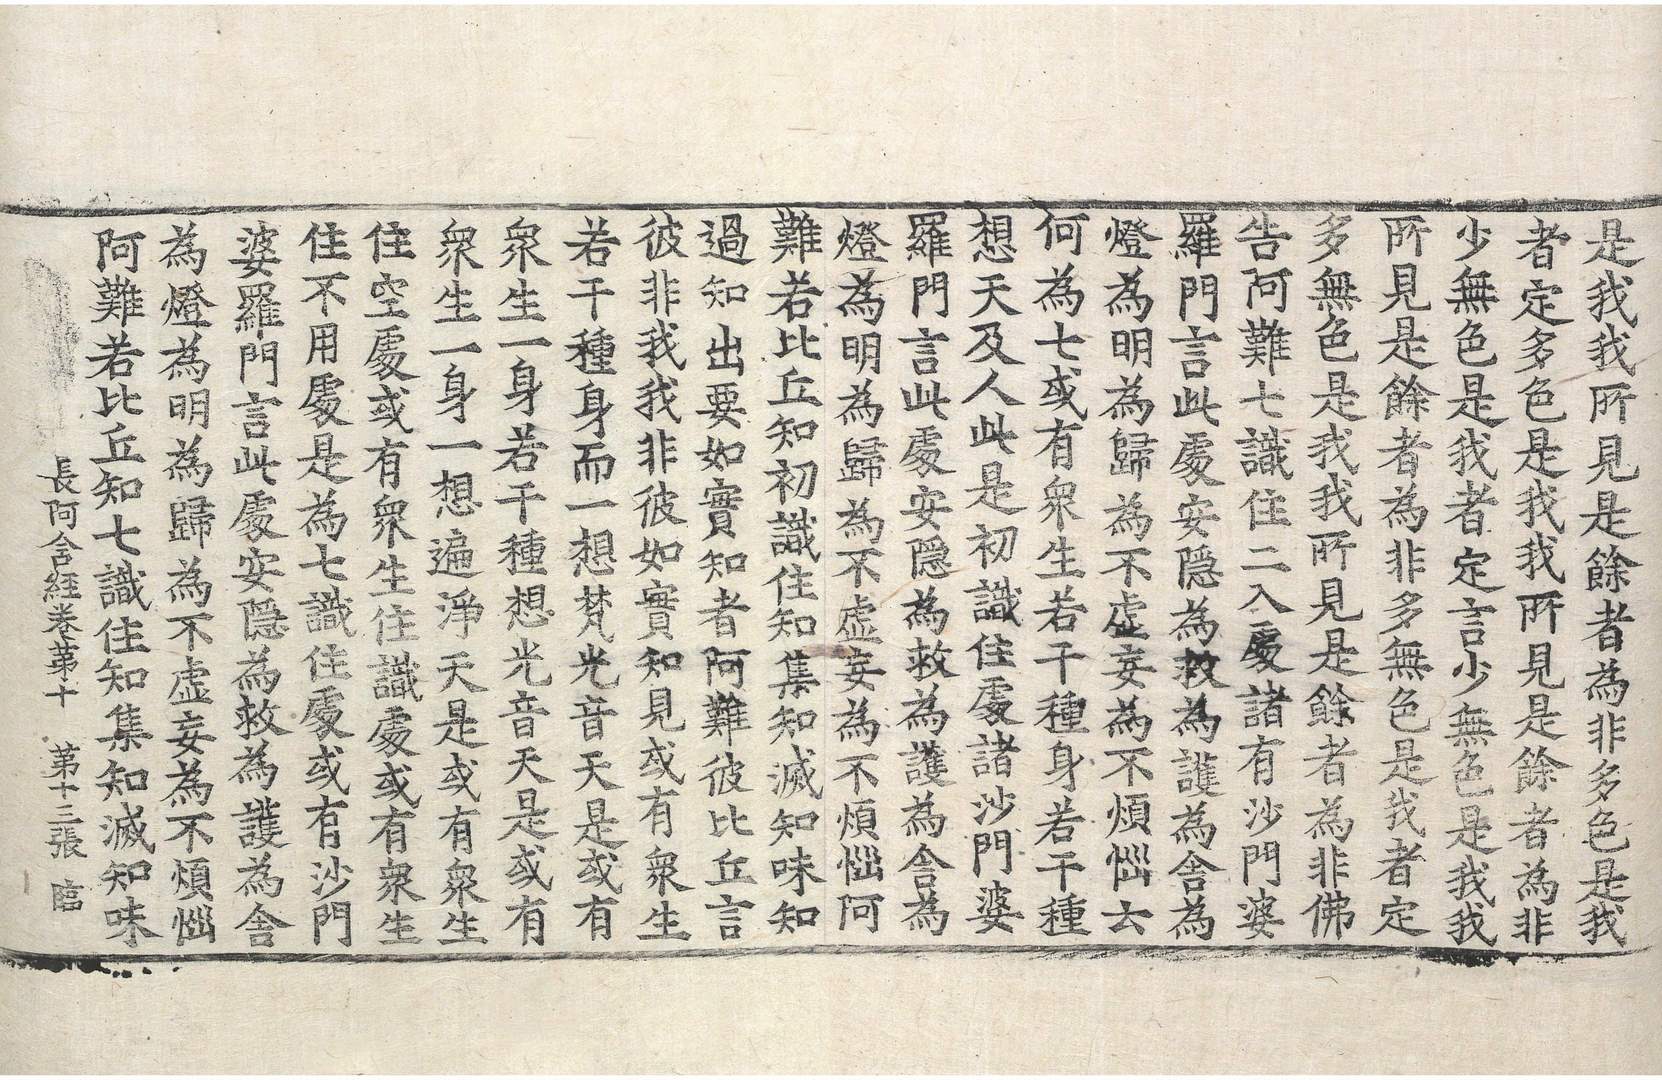 是我我所見是餘者為非多色是我
者定多色是我我所見是餘者為非
少無色是我者定言少無色是我我
所見是餘者為非多無色是我者定
多無色是我我所見是餘者為非佛
告阿難七識住二入處諸有沙門婆
羅門言此處安隱為救為護為舍為
燈為明為歸為不虛妄為不煩惱云
何為七或有眾生若干種身若干種
想天及人此是初識住處諸沙門婆
羅門言此處安隱為救為護為舍為
燈為明為歸為不虛妄為不煩惱阿
難若比丘知初識住知集知滅知味知
過知出要如實知者阿難彼比丘言
彼非我我非彼如實知見或有眾生
若干種身而一想梵光音天是或有
眾生一身若干種想光音天是或有
眾生一身一想遍淨天是或有眾生
住空處或有眾生住識處或有眾生
住不用處是為七識住處或有沙門
婆羅門言此處安隱為救為護為舍
為燈為明為歸為不虛妄為不煩惱
阿難若比丘知七識住知集知滅知味
長阿含經卷第十 第十三張 臨